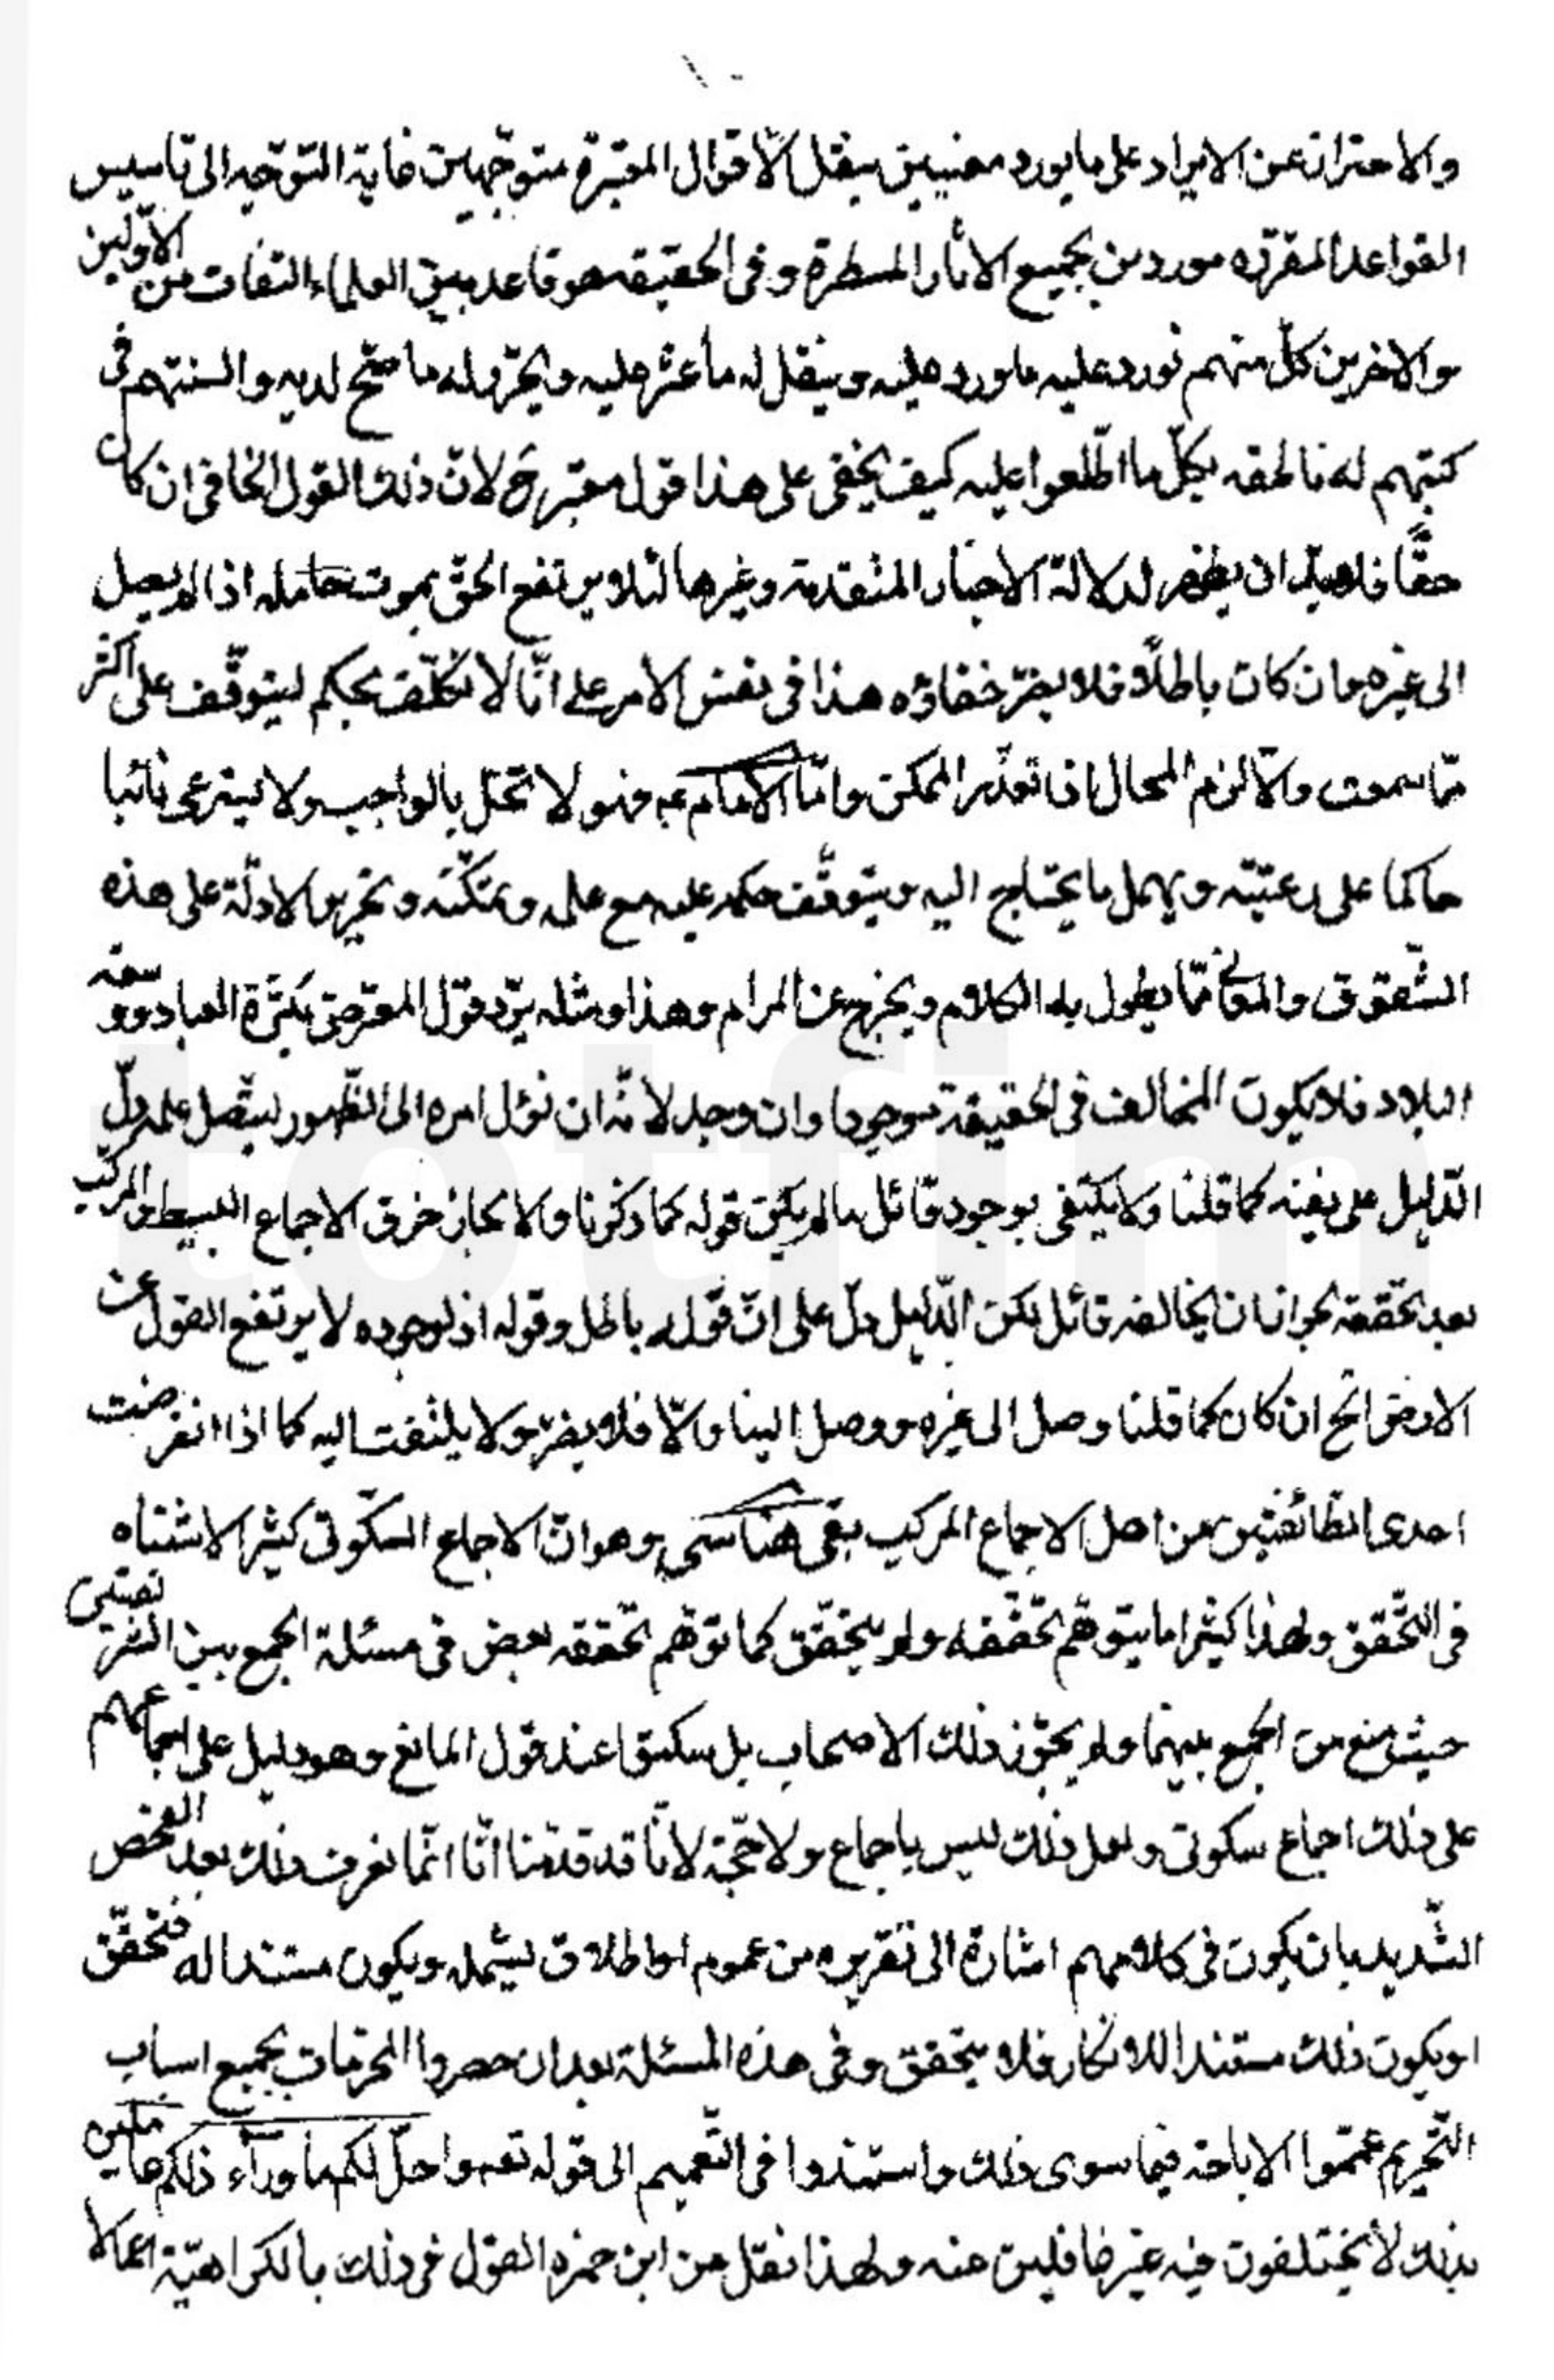 ١٠
والاحتراز عن الايراد على ما يورد معنيين بنقل الاقوال المعتبرة متوجّهين غاية التوجّه الى تاسيس
القواعد المقرّره موردين بجميع الاثار المسطرة وفى الحقيقه هو قاعد بين العلماء الثقات من الاوّلين
والاخرين كلّ منهم نورد عليه ما ورد عليه وينقل له ما عثر عليه ويحرّر له ما صحّ لديه والسنتهم فى
كتبهم له ناطقه بكلّ ما اطّلعوا عليه كيف يخفى على هذا قول معتبر ح لانّ ذلك القول الخافى ان كان
حقًّا فلا بدّ ان يظهر لدلالة الاخبار المتقدمة وغيرها لئلا يرتفع الحقّ بموت حامله اذا لم يصل
الى غيره وان كان باطلًا فلا يضرّ خفاؤه هذا فى نفس الامر على انّا لا نكلّف بحكم ليتوقّف على اكثر
ممّا سمعت والّا لزم المحال اذا تعذّر الممكن وامّا الامام عه فهو لا تخل بالواجب ولا يسترعى نائبا
حاكما على رعيّته ويهمل ما يحتاج اليه ويتوقّف حكمه عليه مع علمه وتمكّنه وتحرير الادلّة على هذه
الشّقوق والمعانى ممّا يطول به الكلام ويخرج عن المرام وهذا ومثله يردّ قول المعترض بكثرة العباد وسعة
البلاد فلا يكون المخالف فى الحقيقة موجودا وان وجد لانّه ان نؤل امره الى الظّهور ليتّصل علمه دلّ
الدّليل على نفيه كما قلنا ولا يكتفى بوجود قائل ما لم يكن قوله كما ذكرنا والا لجاز خرق الاجماع البسيط والمركّب
بعد تحقّقه لجواز ان يخالفه قائل لكن الدّليل دلّ على انّ قوله باطل وقوله اذ لوجوده لا يرتفع القول عن
الارض الخ ان كان كما قلنا وصل الى غيره ووصل الينا والّا فلا يضرّ ولا يلتفت اليه كما اذا انقرضت
احدى الطائفتين من اهل الاجماع المركب بقى هنا شىء وهو انّ الاجماع السّكوتى كثير الاشتباه
فى التّحقق ولهذا كثيرا ما يتوهّم تحقّقه ولم يتحقّق كما توهّم تحققه بعض فى مسئلة الجمع بين الشريفتين
حيث منع من الجمع بينهما ولم يجوّز ذلك الاصحاب بل سكتوا عند قول المانع وهو دليل على اجماعهم
على ذلك اجماع سكوتى ولعل ذلك ليس باجماع ولا حجّية لانّا قد قدّمنا انّا انّما نعرف ذلك بعد الفحص
الشّديد بان يكون فى كلامهم اشارة الى تقريره من عموم او اطلاق ليشمله ويكون مستندا له فتحقّق
او يكون ذلك مستندا للانكار فلا يتحقق وفى هذه المسئلة بعد ان حصروا المحرّمات بجميع اسباب
التّحريم عمّموا الاباحة فيما سوى ذلك واستندوا فى التّعميم الى قوله تعه واحلّ لكم ما وراء ذلكم حاكمين
بذلك لا يختلفون فيه غير غافلين عنه ولهذا نقل عن ابن حمزه القول فى ذلك بالكراهيّة اعمالا